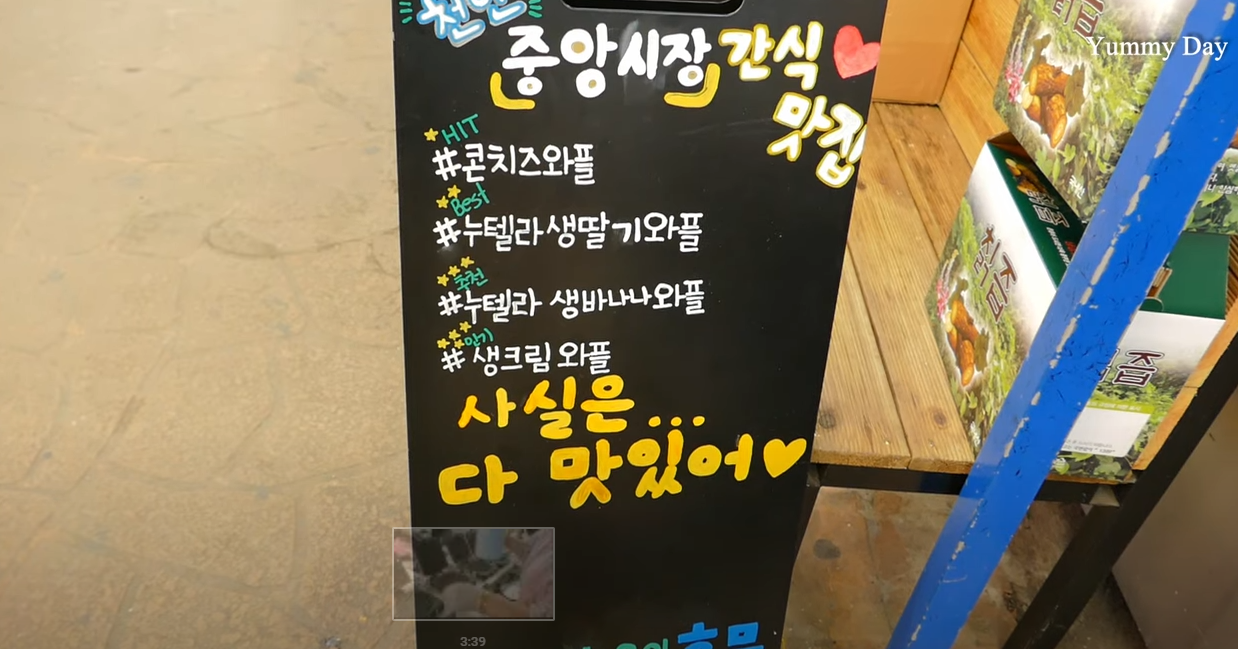 천안
중앙시장 간식
맛집
HIT
#콘치즈와플
Best
#누텔라생딸기와플
추천
#누텔라 생바나나와플
인기
# 생크림와플
사실은...
다 맛있어
Yummy Day
칡즙
즙
3:39